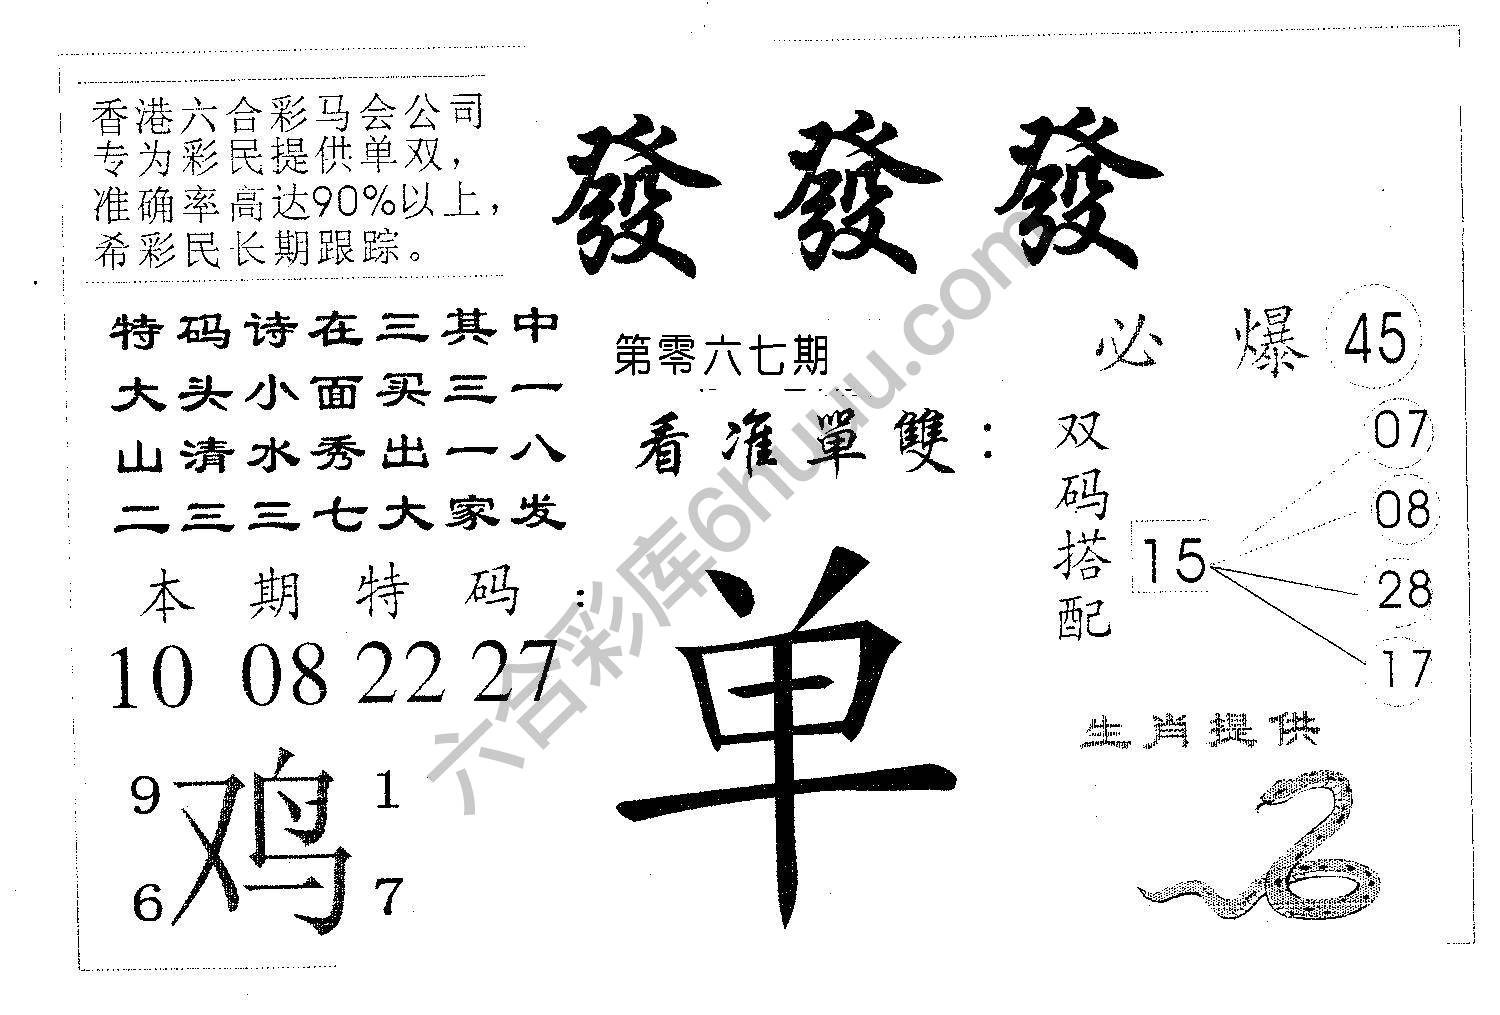 香港六合彩马会公司
专为彩民提供单双，
准确率高达90%以上，
希彩民长期跟踪。
發 發 發
特码诗在三其中
大头小面买三一
山清水秀出一八
二三三七大家发
第零六七期
看准單雙：
单
必 爆 45
双码搭配
15
07
08
28
17
本期特码：
10 08 22 27
9 1
鸡
6 7
生肖提供
六合彩库6huuu.com